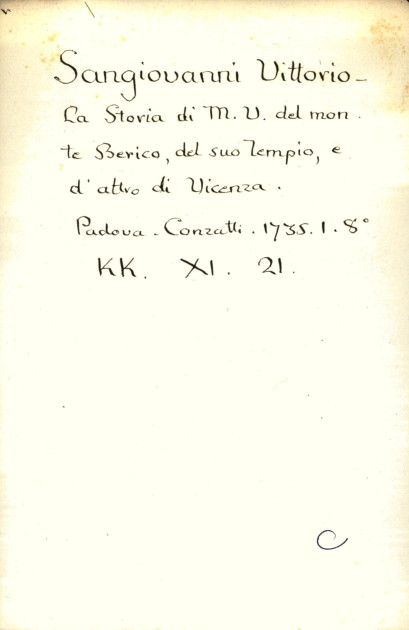 Sangiovanni Vittorio -
La Storia di M. V. del mon.
te Berico, del suo Tempio, e
d'altro di Vicenza.
Padova. Conzatti. 1735. 1. 8°
KK. XI. 21.
C